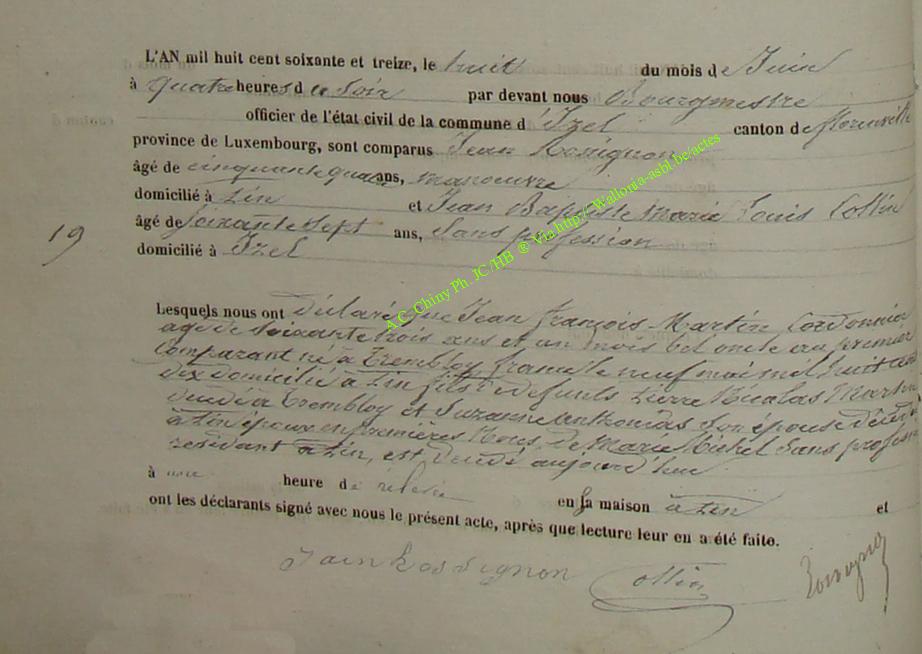 L'AN mil huit cent soixante et treize, le huit du mois de Juin
à quatre heures du Soir par devant nous Bourgmestre
officier de l'état civil de la commune d'Izel canton de florenville
province de Luxembourg, sont comparus Jean Rossignon
âgé de cinquante quatre ans, manoeuvre
domicilié à Pin et Jean Baptiste Marie Louis Collin
âgé de Soixante sept ans, Sans profession
domicilié à Izel
19
Lesquels nous ont déclaré que Jean françois Martin Cordonnier
agé de Soixante trois ans et un mois bel oncle au premier
comparant né à Trembloy france le neuf mai mil huit cent
dix domicilié à Pin fils de defunts Pierre Nicolas Martin
décédé à Trembloy et Suzanne son épouse décédée
à Pin époux en premières Noces de Marie Michel Sans profession
residant à Pin, est décédé aujourd'hui
à une heure de relevée en la maison à Pin et
ont les déclarants signé avec nous le présent acte, après que lecture leur en a été faite.
Jain Rossignon Collin
A.C. Chiny Ph. JC/HB ® Via http://Wallonia-asbl.be/actes